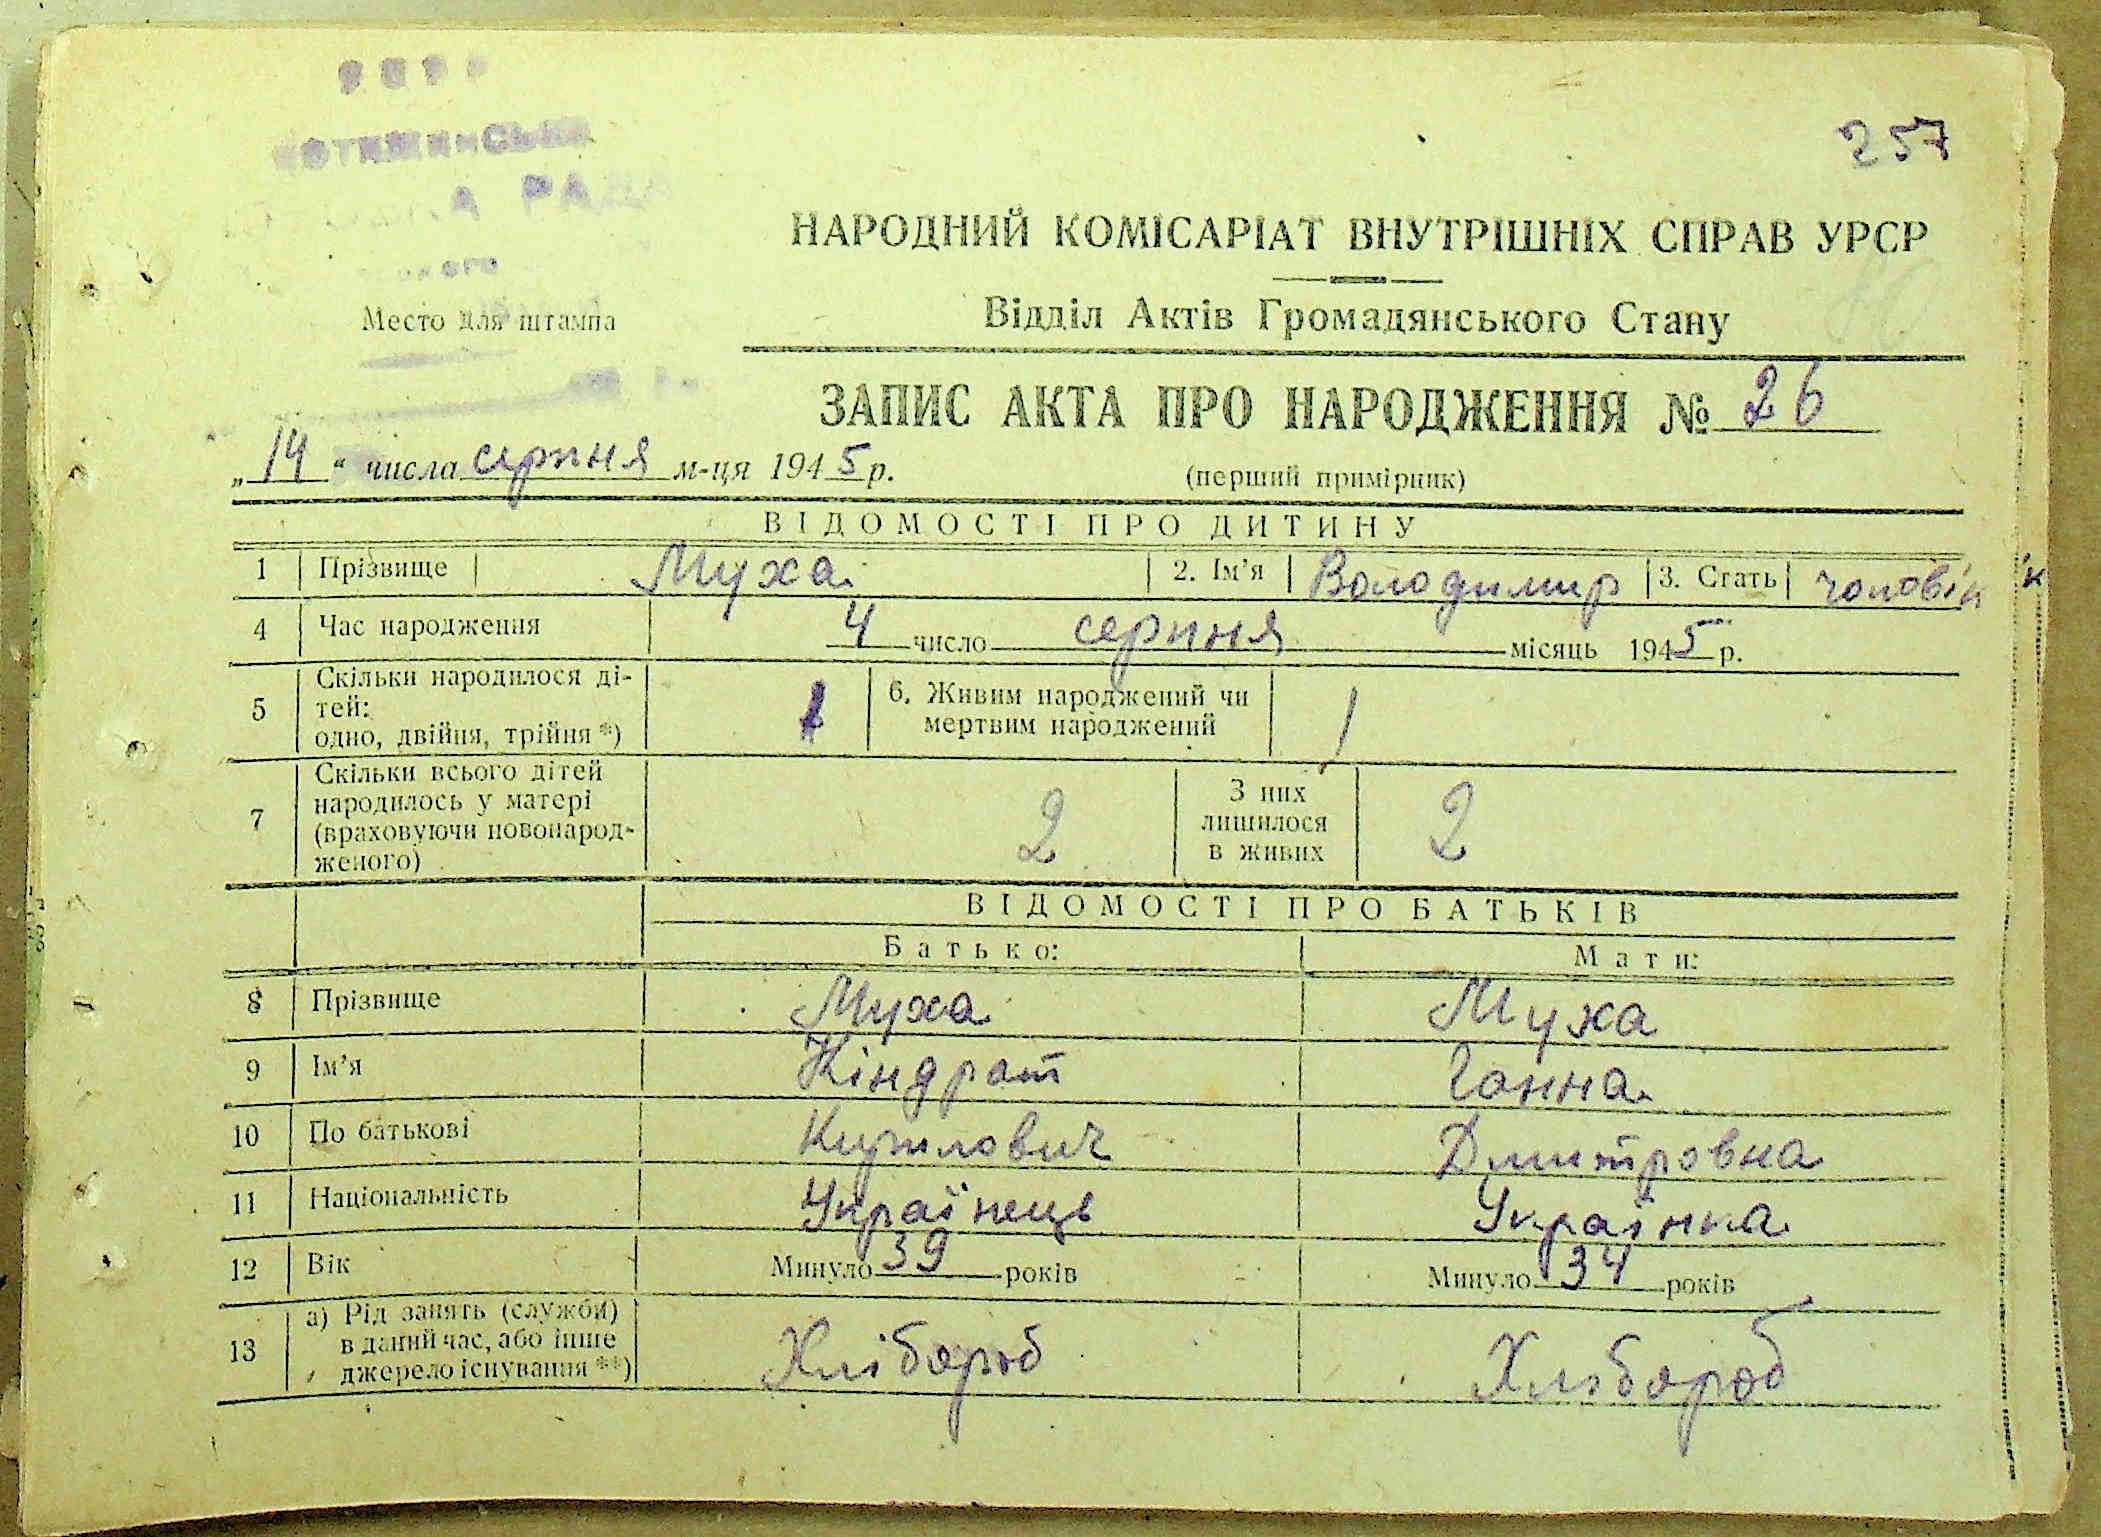 УРСР
КОТЮЖИНСЬКА
А РАДА
ого
257
НАРОДНИЙ КОМІСАРІАТ ВНУТРІШНІХ СПРАВ УРСР
Место для штампа
Відділ Актів Громадянського Стану
ЗАПИС АКТА ПРО НАРОДЖЕННЯ № 26
„14“ числа серпня м-ця 1945 р.
(перший примірник)
ВІДОМОСТІ ПРО ДИТИНУ
1 Прізвище Муха 2. Ім'я Володимир 3. Стать чоловік
4 Час народження 4 число серпня місяць 1945 р.
5 Скільки народилося ді-
тей:
одно, двійня, трійня *) 1
6. Живим народжений чи
мертвим народжений 1
7 Скільки всього дітей
народилось у матері
(враховуючи новонарод-
женого) 2
З них
лишилося
в живих 2
ВІДОМОСТІ ПРО БАТЬКІВ
Батько: Мати:
8 Прізвище Муха Муха
9 Ім'я Кіндрат Ганна
10 По батькові Кирилович Дмитровна
11 Національність Українець Українка
12 Вік Минуло 39 років Минуло 34 років
13 а) Рід занять (служби)
в даний час, або інше
джерело існування **) Хлібороб Хлібороб